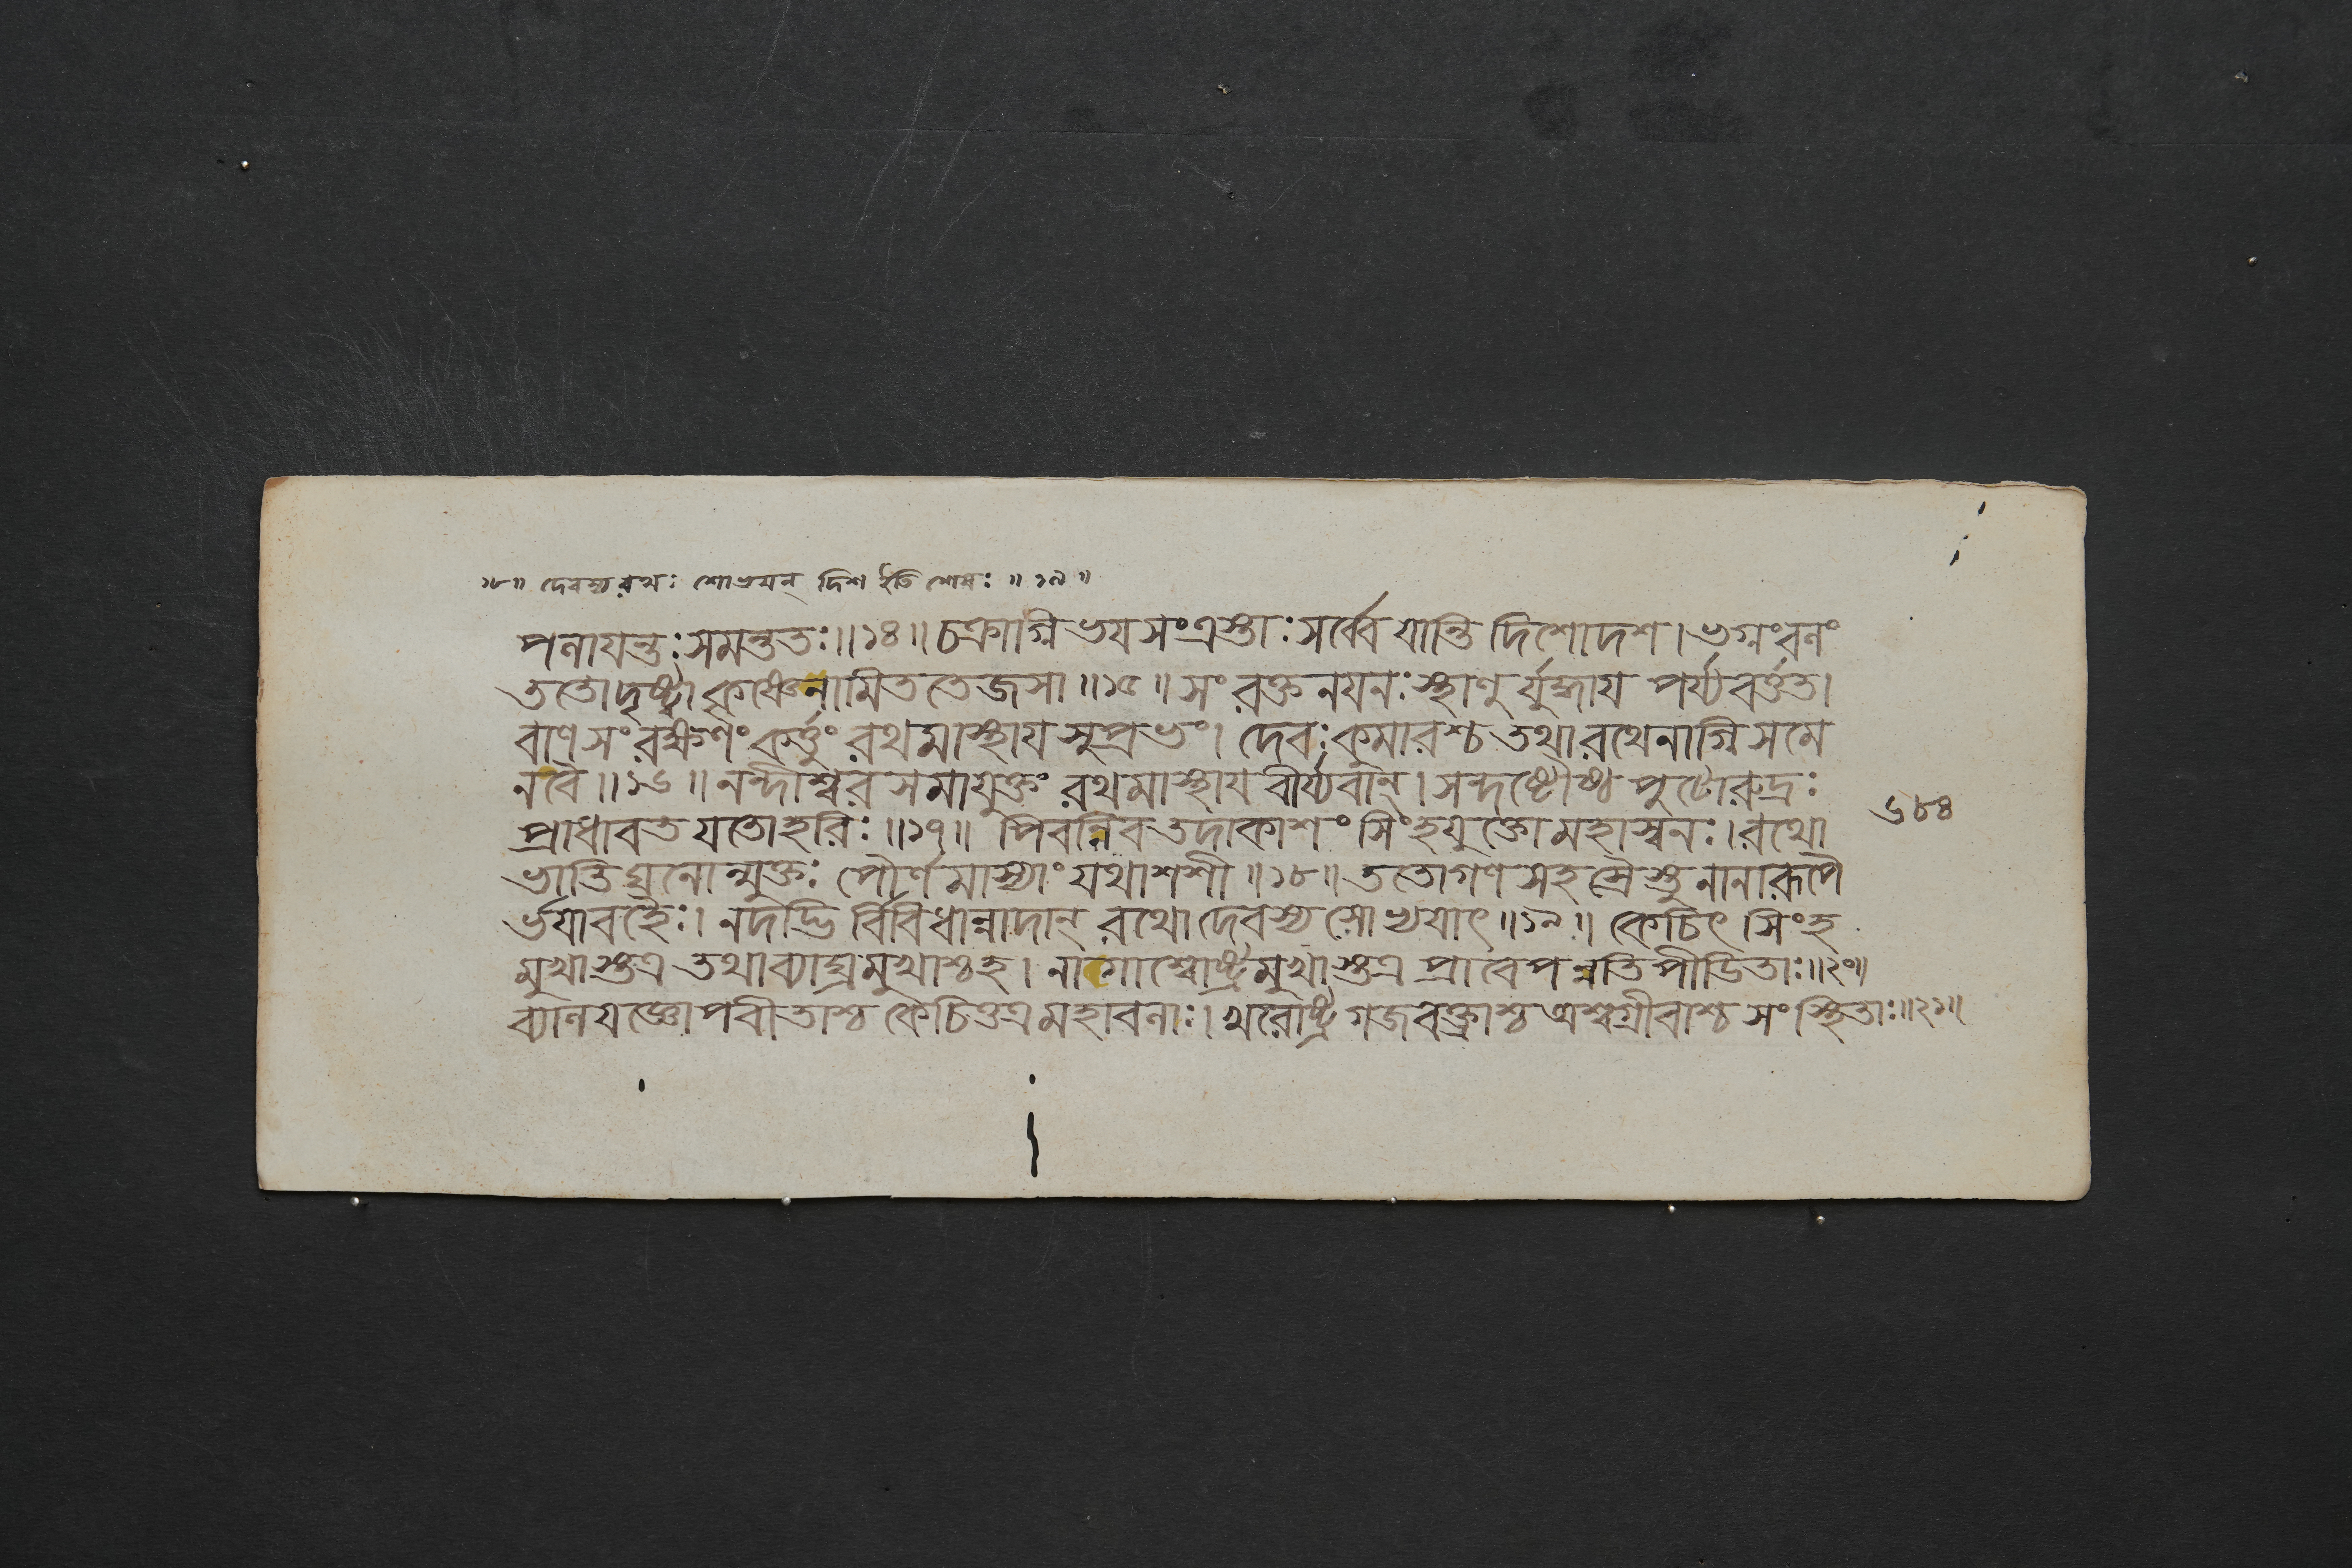 ১৮॥ দেবস্য রথঃ শোভয়ন্ দিশ ইতি শেষঃ ॥ ১৯॥
পলায়ন্তঃ সমন্ততঃ॥১৪॥ চক্রাগ্নিভয়সংত্রস্তাঃ সর্ব্বে যান্তি দিশোদশ। ভগ্নংবলং
ততোদৃষ্ট্বা কৃষ্ণেনামিততেজসা॥১৫॥ সংরক্তনয়নঃস্থাণু র্যুদ্ধায় পর্য্যবর্ত্তত।
বাণসংরক্ষণং কর্ত্তুং রথমাস্থায় সুপ্রভং। দেবঃকুমারশ্চ তথা রথেনাগ্নিসমে
নবৈ॥১৬॥ নন্দীশ্বর সমাযুক্তং রথমাস্থায় বীর্য্যবান্। সন্দষ্টৌষ্ঠ পুটোরুদ্রঃ
প্রাধাবত যতোহরিঃ॥১৭॥ পিবন্নিব তদাকাশং সিংহযুক্তো মহাস্বনঃ। রথো
ভাতি ঘনোন্মুক্তঃ পৌর্ণমাস্যাং যথাশশী॥১৮॥ ততোগণ সহস্রৈস্তু নানারূপৈ
র্ভয়াবহৈঃ। নদদ্ভি র্বিবিধান্নাদান্ রথো দেবস্য সোভ্যয়াৎ॥১৯॥ কেচিৎ সিংহ
মুখাস্তত্র তথাব্যাঘ্রমুখাশ্চহ। নাগাশ্বোষ্ট্রমুখাস্তত্র প্রাবেপন্নতিপীডিতাঃ॥২০॥
ব্যালযজ্ঞোপবীতাশ্চ কেচিত্তত্র মহাবলাঃ। খরোষ্ট্র গজবক্ত্রাশ্চ অশ্বগ্রীবাশ্চ সংস্থিতাঃ॥২১॥
৬৮৪